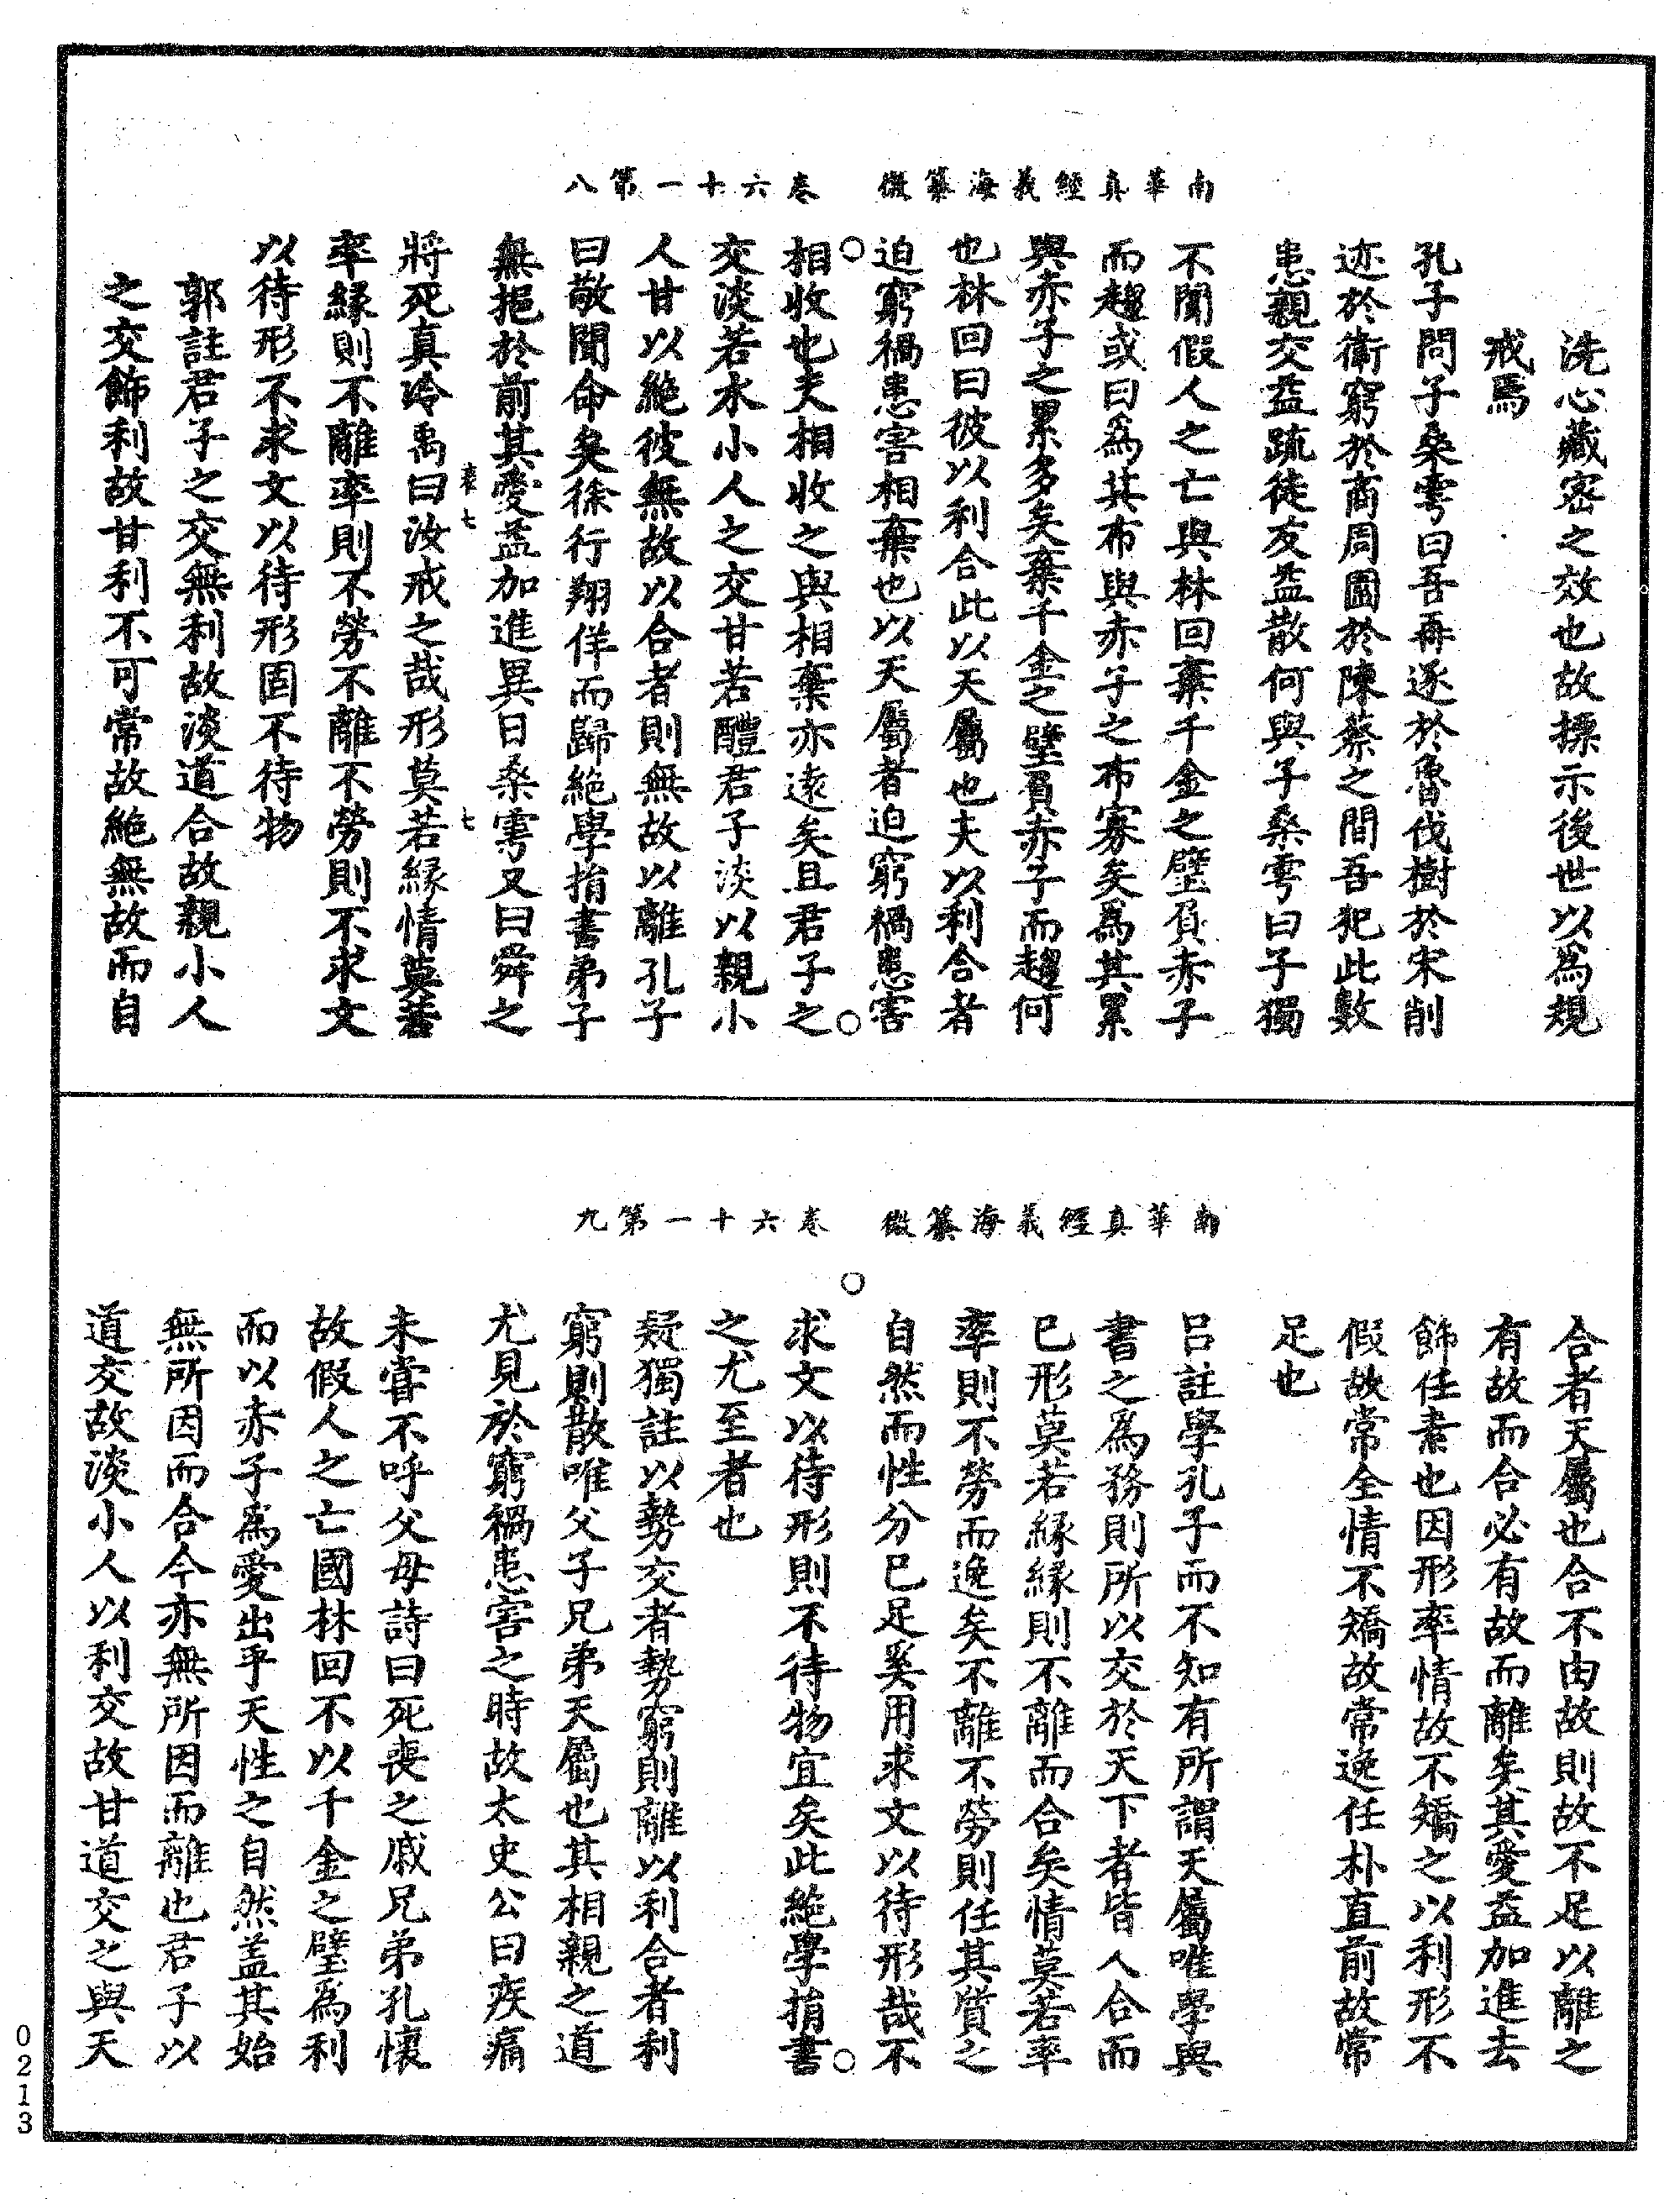 南華真經義海纂微　卷六十一第八
洗心藏密之效也故摽示後世以為規
戒焉
孔子問子桑雽曰吾再逐於魯伐樹於宋削
迹於衛窮於商周圍於陳蔡之間吾犯此數
患親交益䟽徒友益散何與子桑雽曰子獨
不聞假人之亡與林回棄千金之璧負赤子
而趨或曰為其布與赤子之布寡矣為其累
與赤子之累多矣棄千金之璧負赤子而趨何
也林回曰彼以利合此以天屬也夫以利合者
迫窮禍患害相棄也以天屬者迫窮禍患害
相收也夫相收之與相棄亦遠矣且君子之
交淡若水小人之交甘若醴君子淡以親小
人甘以絕彼無故以合者則無故以離孔子
曰敬聞命矣徐行翔佯而歸絕學捐書弟子
無挹於前其愛益加進異日桑雽又曰舜之
七
七
將死真泠禹曰汝戒之哉形莫若緣情莫若
率緣則不離率則不勞不離不勞則不求文
以待形不求文以待形固不待物
郭註君子之交無利故淡道合故親小人
之交飾利故甘利不可常故絕無故而自
南華真經義海纂微　卷六十一第九
合者天屬也合不由故則故不足以離之
有故而合必有故而離矣其愛益加進去
飾任素也因形率情故不矯之以利形不
假故常全情不矯故常逸任朴直前故常
足也
呂註學孔子而不知有所謂天屬唯學與
書之為務則所以交於天下者皆人合而
已形莫若緣緣則不離而合矣情莫若率
率則不勞而逸矣不離不勞則任其質之
自然而性分已足奚用求文以待形哉不
求文以待形則不待物宜矣此絕學捐書
之尤至者也
疑獨註以勢交者勢窮則離以利合者利
窮則散唯父子兄弟天屬也其相親之道
尤見於窮禍患害之時故太史公曰疾痛
未嘗不呼父母詩曰死喪之戚兄弟孔懷
故假人之亡國林回不以千金之璧為利
而以赤子為愛出乎天性之自然盖其始
無所因而合今亦無所因而離也君子以
道交故淡小人以利交故甘道交之與天
0213